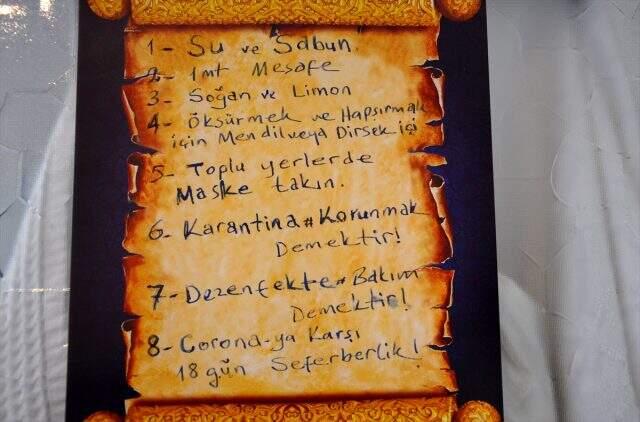 1- Su ve Sabun
2- 1mt Mesafe
3- Soğan ve Limon
4- Öksürmek ve Hapşırmak
için Mendil veya Dirsek içi
5- Toplu yerlerde
Maske takın.
6- Karantina# Korunmak
Demektir!
7- Dezenfekte# Bakım
Demektir!
8- Corona-ya Karşı
18 gün Seferberlik!